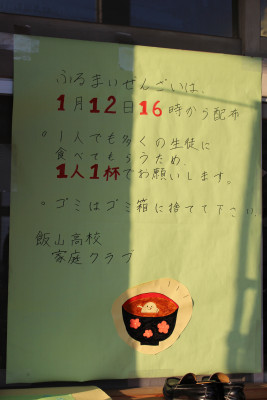 ふるまいぜんざいは、
1月12日16時から配布
。1人でも多くの生徒に
食べてもらうため、
1人1杯でお願いします。
。ゴミはゴミ箱に捨てて下さい。
飯山高校
家庭クラブ